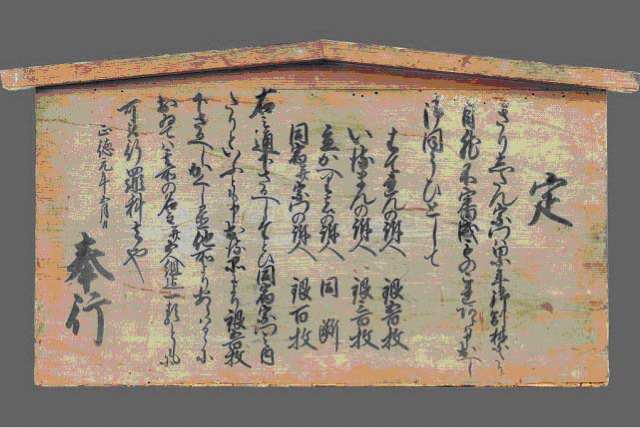 定
きりしたん宗門累年御制禁たり
自然不審成ものこれあらは申出へし
御ほうひとして
はてれんの訴人 銀五百枚
いるまんの訴人 銀三百枚
立かへり者の訴人 同断
同宿并宗門の訴人 銀百枚
右之通下さるへしたとひ同宿宗門之内
たりといふとも申出る品により銀五百枚
下さるへしかくし置他所よりあらはるゝに
おゐてハ其所の名主并五人組迄一類ともに
可被行罪科者也
正徳元年五月日
奉行